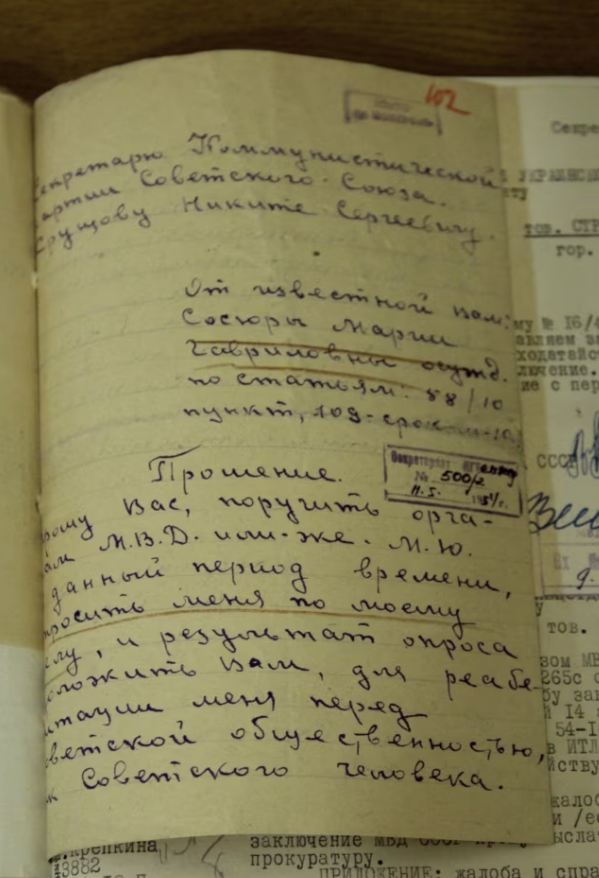 102
екретарю Коммунистической
артии Советского Союза.
рущову Никите Сергеевичу.
От известной вам:
Сосюры Марии
Гавриловны осужд.
по статьям: 58/10
пункт, 109-срок
Прошение.
рошу Вас, поручить орга-
ам М.В.Д. или-же. М.Ю.
данный период времени,
просить меня по моему
елу, и результат опроса
оложить Вам, для реабе-
итации меня перед
оветской общественностью,
к Советского человека.
Секретариат
№ 500/2
11.5. 1954 г.
Секре
УКРАИНСКО
ату
тов. СТР
гор.
му № 16/4
авляем за
ходатайст
лючение.
ие с пер
СССР
тов.
зом МВ
265с о
бу зак
й 14 а
54-1
в ИТЛ
йству
жалоб
и /ес
Крепкина
заключение МВД СССР
ыслат
3882
прокуратуру.
ПРИЛОЖЕНИЕ: жалоба и спра